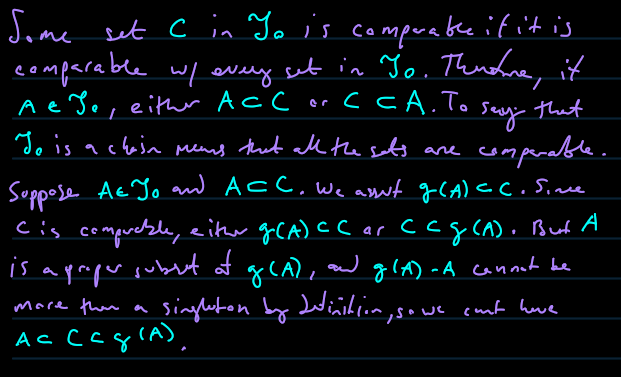 Some set C in 𝒥₀ is comparable if it is
comparable w/ every set in 𝒥₀. Therefore, if
A ∈ 𝒥₀, either A ⊂ C or C ⊂ A. To say that
𝒥₀ is a chain means that all the sets are comparable.
Suppose A ∈ 𝒥₀ and A ⊂ C. We assert g(A) ⊂ C. Since
C is comparable, either g(A) ⊂ C or C ⊂ g(A). But A
is a proper subset of g(A), and g(A) - A cannot be
more than a singleton by definition, so we cant have
A ⊂ C ⊂ g(A).